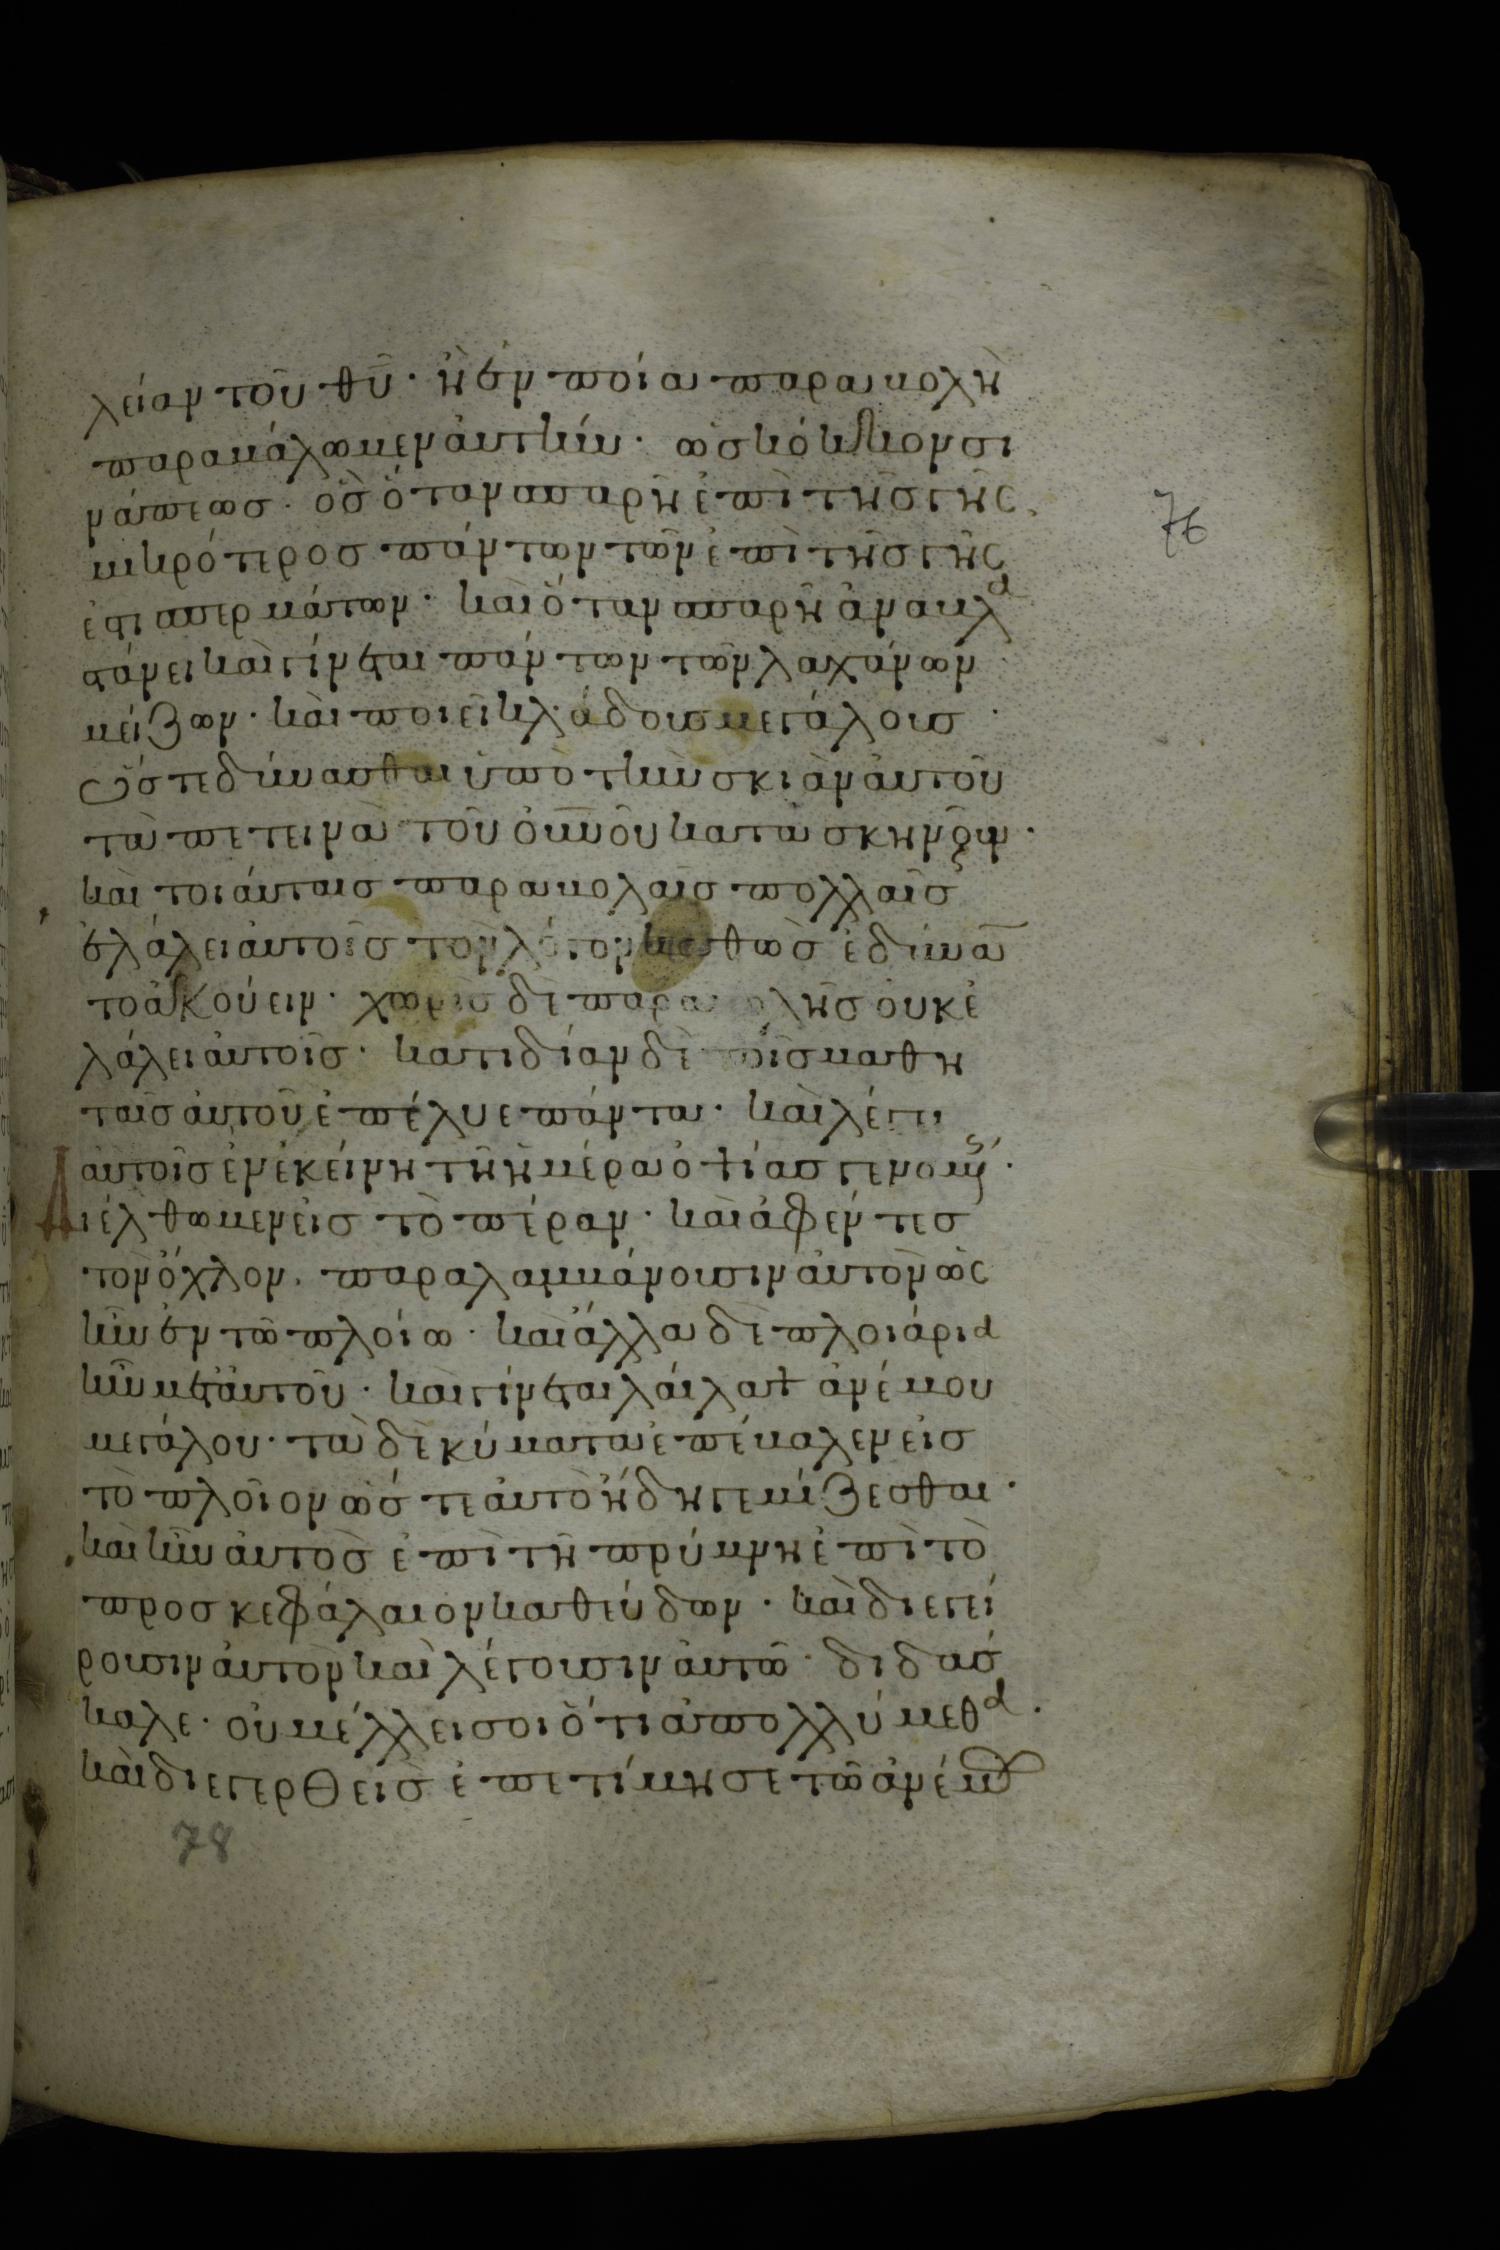 λείαν τοῦ θῦ · ἢ ἐν ποία παραβολῆ
παραβάλωμεν ἀυτήν · ὡς κόκκον σι
νάπεως · ὃς ὅταν σπαρῆ ἐπὶ τῆς γῆς ·
76
μικρότερος πάντων τῶν ἐπὶ τῆς γῆς
ἐστὶ σπερμάτων · καὶ ὅταν σπαρῆ ἀναβα
ίνει καὶ γίνεται πάντων τῶν λαχάνων
μείζων · καὶ ποιεῖ κλάδους μεγάλους ·
ὥστε δύνασθαι ὑπὸ τὴν σκιὰν ἀυτοῦ
τὰ πετεινὰ τοῦ ὀυνοῦ κατασκηνοῦν ·
καὶ τοιάυταις παραβολαῖς πολλαῖς
ἐλάλει ἀυτοῖς τὸν λόγον καθὼς ἐδύναν
το ἀκούειν · χωρὶς δὲ παραβολῆς οὐκ ἐ
λάλει ἀυτοῖς · κατιδίαν δὲ τοῖς μαθη
ταῖς ἀυτοῦ ἐπέλυε πάντα · καὶ λέγει
ἀυτοῖς ἐν ἐκείνη τῆ ἡμέρα ὀψίας γενομένης ·
Διέλθωμεν εἰς τὸ πέραν · καὶ ἀφέντες
τὸν ὄχλον · παραλαμβάνουσιν ἀυτὸν ὡς
ἦν ἐν τῶ πλοίω · καὶ ἄλλα δὲ πλοιάρια
ἦν μετἀυτοῦ · καὶ γίνεται λαίλαψ ἀνέμου
μεγάλου · τὰ δὲ κύματα ἐπέβαλεν εἰς
τὸ πλοῖον ὥστε ἀυτὸ ἤδη γεμίζεσθαι ·
καὶ ἦν ἀυτὸς ἐπὶ τῆ πρύμνη ἐπὶ τὸ
προσκεφάλαιον καθεύδων · καὶ διεγεί
ρουσιν ἀυτὸν καὶ λέγουσιν ἀυτῶ · διδάσ
καλε · οὐ μέλλει σοι ὅτι ἀπολλύμεθα ·
καὶ διεγερθεὶς ἐπετίμησε τῶ ἀνέμω
78